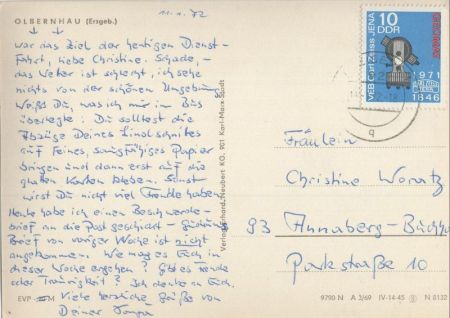 11.1.72
OLBERNHAU (Erzgeb.)
war das Ziel der heutigen Dienst-
Fahrt, liebe Christine. Schade, -
das Wetter ist schlecht, ich sehe
nichts von der schönen Umgebung.
Weißt Du, was ich mir im Bus
überlegte: Du solltest die
Abzüge Deines Linolschnittes
auf feines, saugfähiges Papier
bringen und dann erst auf die
Karten kleben. Sonst
wirst Du nicht viel Freude haben.
Heute habe ich einen Beschwerde-
brief an die Post geschickt –
Brief von voriger Woche ist nicht
angekommen. Wie mag es Euch in
dieser Woche ergehen? Gibt es Freude
oder Traurigkeit? Ich denke an Euch.
Viele herzliche Grüße von
Deiner
EVP M
Verlag Erhard Neubert KG, 901 Karl-Marx-Stadt
10
DDR
VEB Carl Zeiss JENA
1971
1846
Fräulein
Christine
93 Annaberg-Buchho
Parkstraße 10
9790 N A 3/69 IV-14-45 N 8132